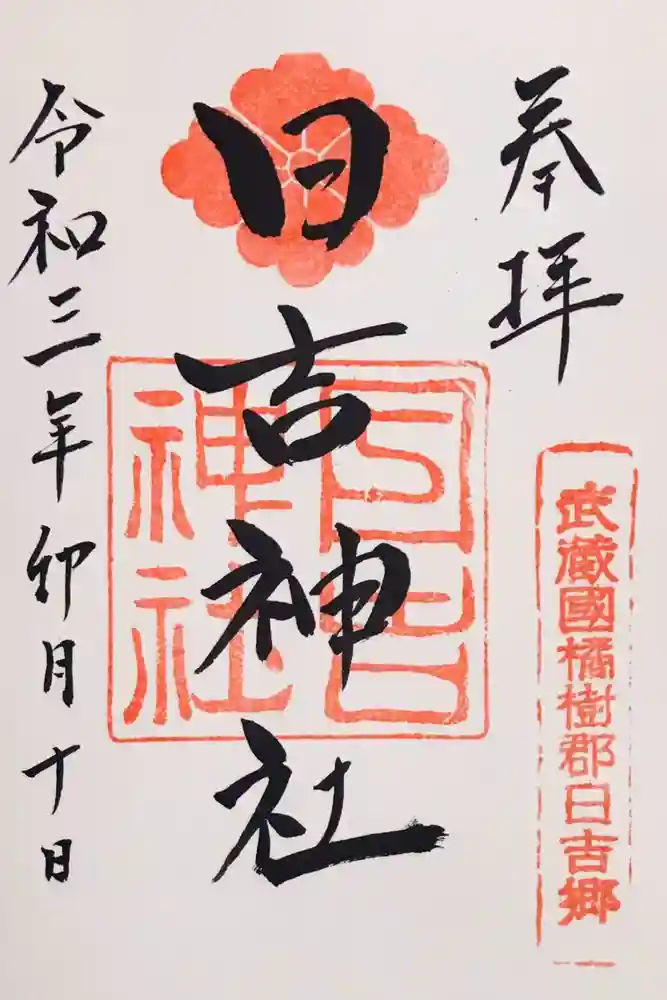 奉拝
武蔵國橘樹郡日吉郷
日吉神社
日吉
神社
令和三年卯月十日